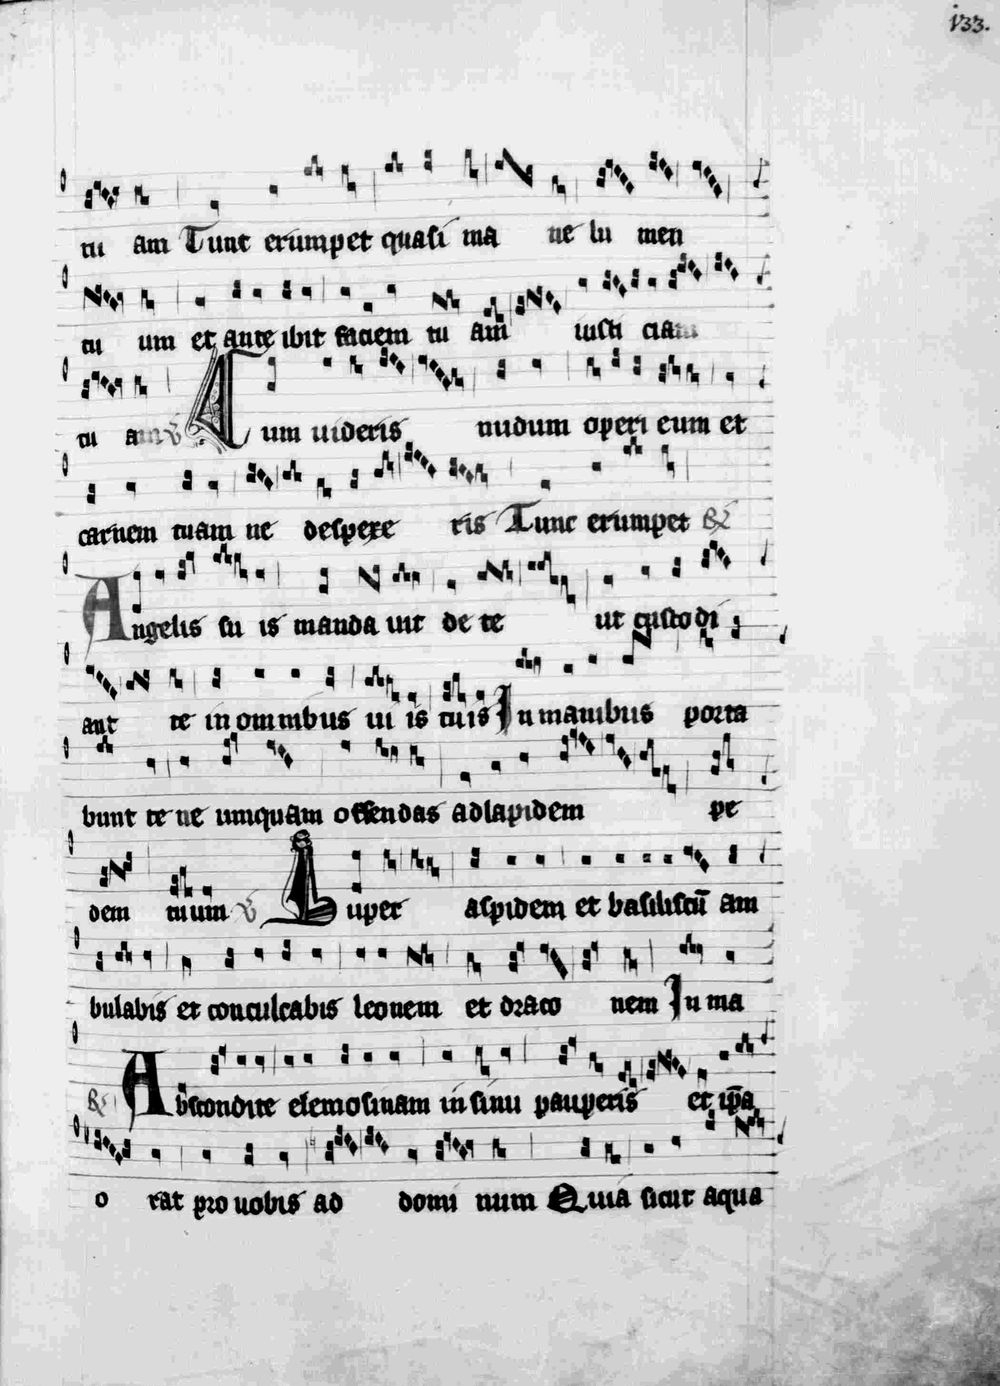 133.
tu am Tunc erumpet quasi ma ne lu men
tu um et ante ibit faciem tu am iusti ciam
tu am ℣ Cum uideris nudum operi eum et
carnem tuam ne despexe ris Tunc erumpet ℟
Angelis su is manda uit de te ut custo di
ant te in omnibus ui is tuis In manibus porta
bunt te ne umquam offendas ad lapidem pe
dem tuum ℣ Super aspidem et basiliscū am
bulabis et conculcabis leonem et draco nem In ma
℟ Abscondite elemosinam in sinu pauperis et ip̄a
o rat pro uobis ad domi num Quia sicut aqua